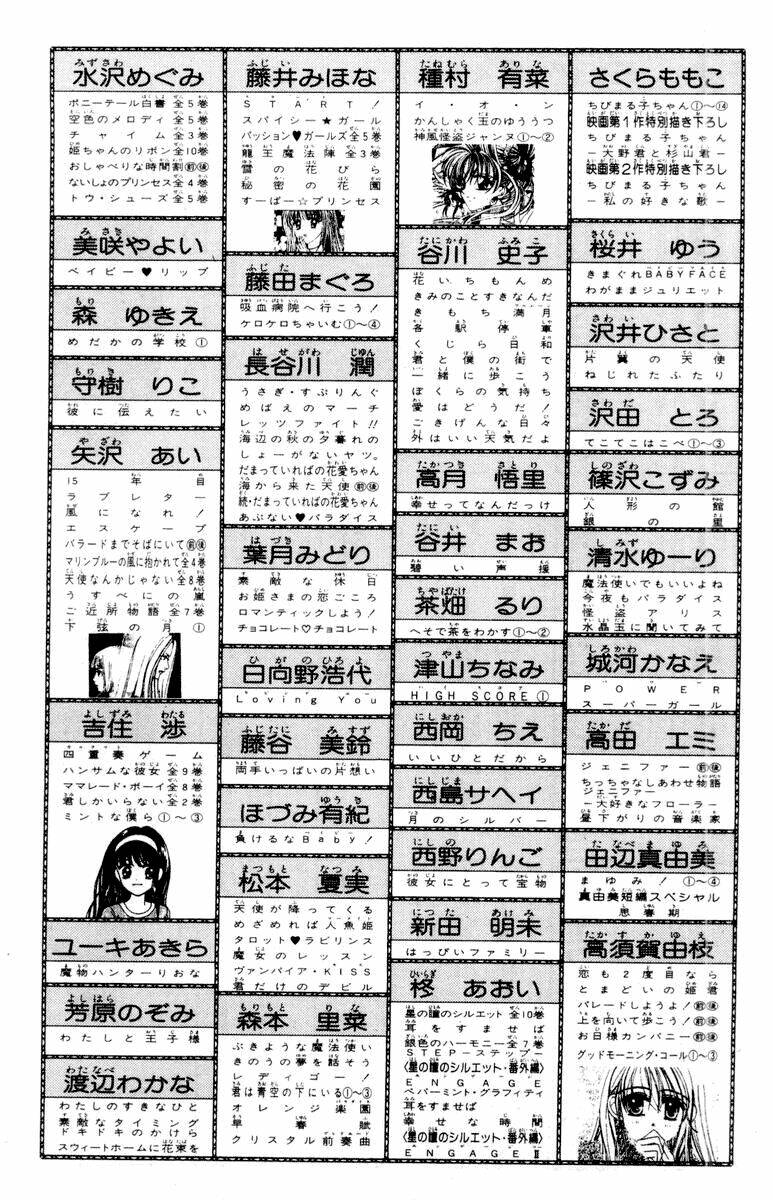 さくらももこ
ちびまる子ちゃん①〜⑭
映画第1作特別描き下ろし
ちびまる子ちゃん
－大野君と杉山君－
映画第2作特別描き下ろし
ちびまる子ちゃん
－私の好きな歌－
桜井 ゆう
きまぐれBABY FACE
わがままジュリエット
沢井ひさと
片翼の天使
ねじれたふたり
沢田 とろ
てこてこはこべ①〜③
篠沢こずみ
人形の館
銀の里
清水ゆーり
魔法使いでもいいよね
今夜もパラダイス
怪盗アリス
水晶玉に聞いてみて
城河かなえ
POWER
スーパーガール
高田 エミ
ジェニファー前後
ちっちゃなしあわせ物語
ジェニファー
－大好きなフローラー－
昼下がりの音楽家
田辺真由美
まゆみ！①〜④
真由美短編スペシャル
思春期
高須賀由枝
恋も2度目なら
とまどいの姫君
パレードしようよ！前後
上を向いて歩こう！前後
お日様カンパニー前後
グッドモーニング・コール①〜③
種村 有菜
イ・オ・ン
かんしゃく玉のゆううつ
神風怪盗ジャンヌ①〜②
谷川 史子
花いちもんめ
きみのことすきなんだ
きもち満月
各駅停車
くじら日和
君と僕の街で
一緒に歩こう
ぼくらの気持ち
愛はどうだ！
ごきげんな日々
外はいい天気だよ
高月 悟里
幸せってなんだっけ
谷井 まお
碧い声援
茶畑 るり
へそで茶をわかす①〜②
津山ちなみ
HIGH SCORE①
西岡 ちえ
いいひとだから
西島サヘイ
月のシルバー
西野りんご
彼女にとって宝物
新田 明未
はっぴいファミリー
柊 あおい
星の瞳のシルエット 全10巻
耳をすませば
銀色のハーモニー全7巻
STEP－ステップ－
〈星の瞳のシルエット・番外編〉
ENGAGE
ペパーミント・グラフィティ
耳をすませば
幸せな時間
〈星の瞳のシルエット・番外編〉
ENGAGEⅡ
藤井みほな
START！
スパイシー☆ガール
パッション♥ガールズ全5巻
龍王魔法陣全3巻
雪の花びら
秘密の花園
すーぱー☆プリンセス
藤田まぐろ
吸血病院へ行こう！
ケロケロちゃいむ①〜④
長谷川 潤
うさぎ・すぷりんぐ
めばえのマーチ
レッツファイト!!
海辺の秋の夕暮れの
しょーがないヤツ。
だまっていればの花愛ちゃん
海から来た天使前後
続・だまっていればの花愛ちゃん
あぶない♥パラダイス
葉月みどり
素敵な休日
お姫さまの恋ごころ
ロマンティックしよう！
チョコレート♡チョコレート
日向野浩代
Loving You
藤谷 美鈴
両手いっぱいの片想い
ほづみ有紀
負けるなBaby！
松本 夏実
天使が降ってくる
めざめれば人魚姫
タロット♥ラビリンス
魔女のレッスン
ヴァンパイア・KISS
君だけのデビル
森本 里菜
ぶきような魔法使い
きのうの夢を話そう
レディゴー！
君は青空の下にいる①〜③
オレンジ楽園
早春賦
クリスタル前奏曲
水沢めぐみ
ポニーテール白書 全5巻
空色のメロディ 全5巻
チャイム全3巻
姫ちゃんのリボン 全10巻
おしゃべりな時間割前後
ないしょのプリンセス 全4巻
トウ・シューズ全5巻
美咲やよい
ベイビー♥リップ
森 ゆきえ
めだかの学校①
守樹 りこ
彼に伝えたい
矢沢 あい
15年目
ラブレター
風になれ！
エスケープ
バラードまでそばにいて前後
マリンブルーの風に抱かれて全4巻
天使なんかじゃない全8巻
うすべにの嵐
ご近所物語 全7巻
下弦の月①
吉住 渉
四重奏ゲーム
ハンサムな彼女 全9巻
ママレード・ボーイ 全8巻
君しかいらない全2巻
ミントな僕ら①〜③
ユーキあきら
魔物ハンターりおな
芳原のぞみ
わたしと王子様
渡辺わかな
わたしのすきなひと
素敵なタイミング
ドキドキのかけら
スウィートホームに花束を